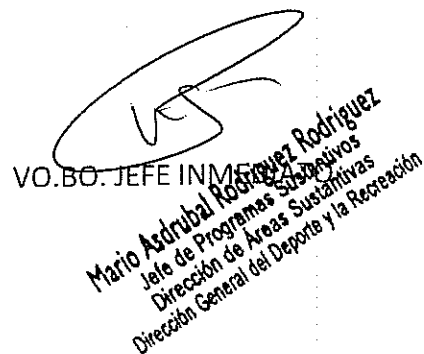 VO.BO. JEFE INMEDIATO
Mario Asdrubal Rodriguez Rodriguez
Jefe de Programas Sustantivos
Dirección de Areas Sustantivas
Dirección General del Deporte y la Recreación